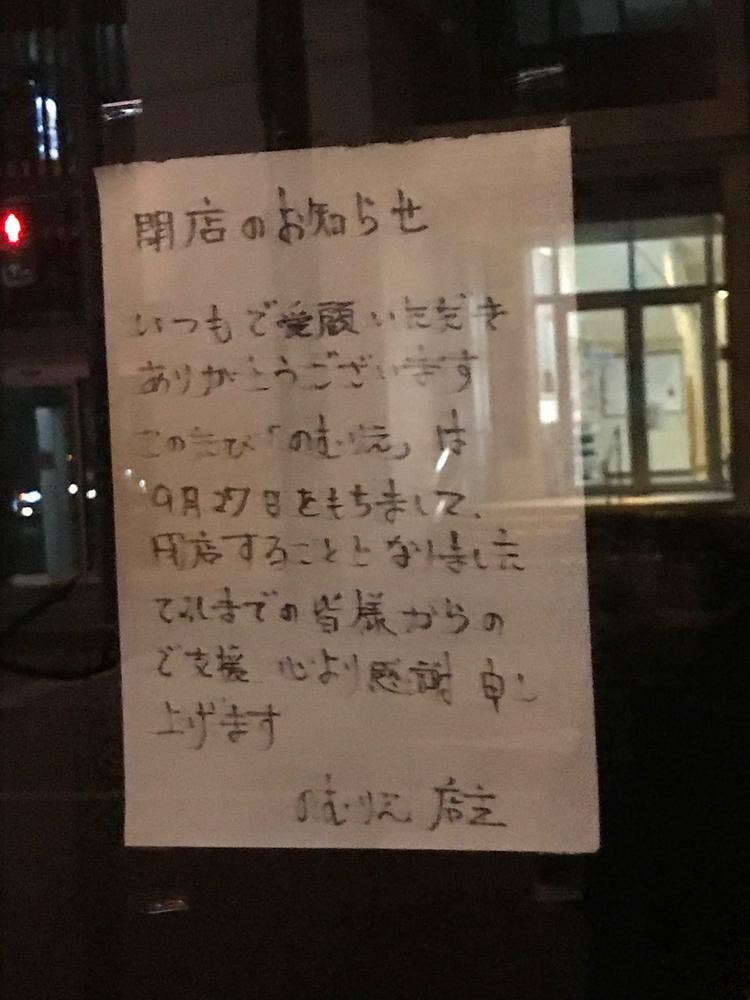 閉店のお知らせ
いつもご愛顧いただき
ありがとうございます
このたび「のむりえ」は
9月27日をもちまして、
閉店することとなりました
これまでの皆様からの
ご支援 心より感謝 申し
上げます
のむりえ 店主